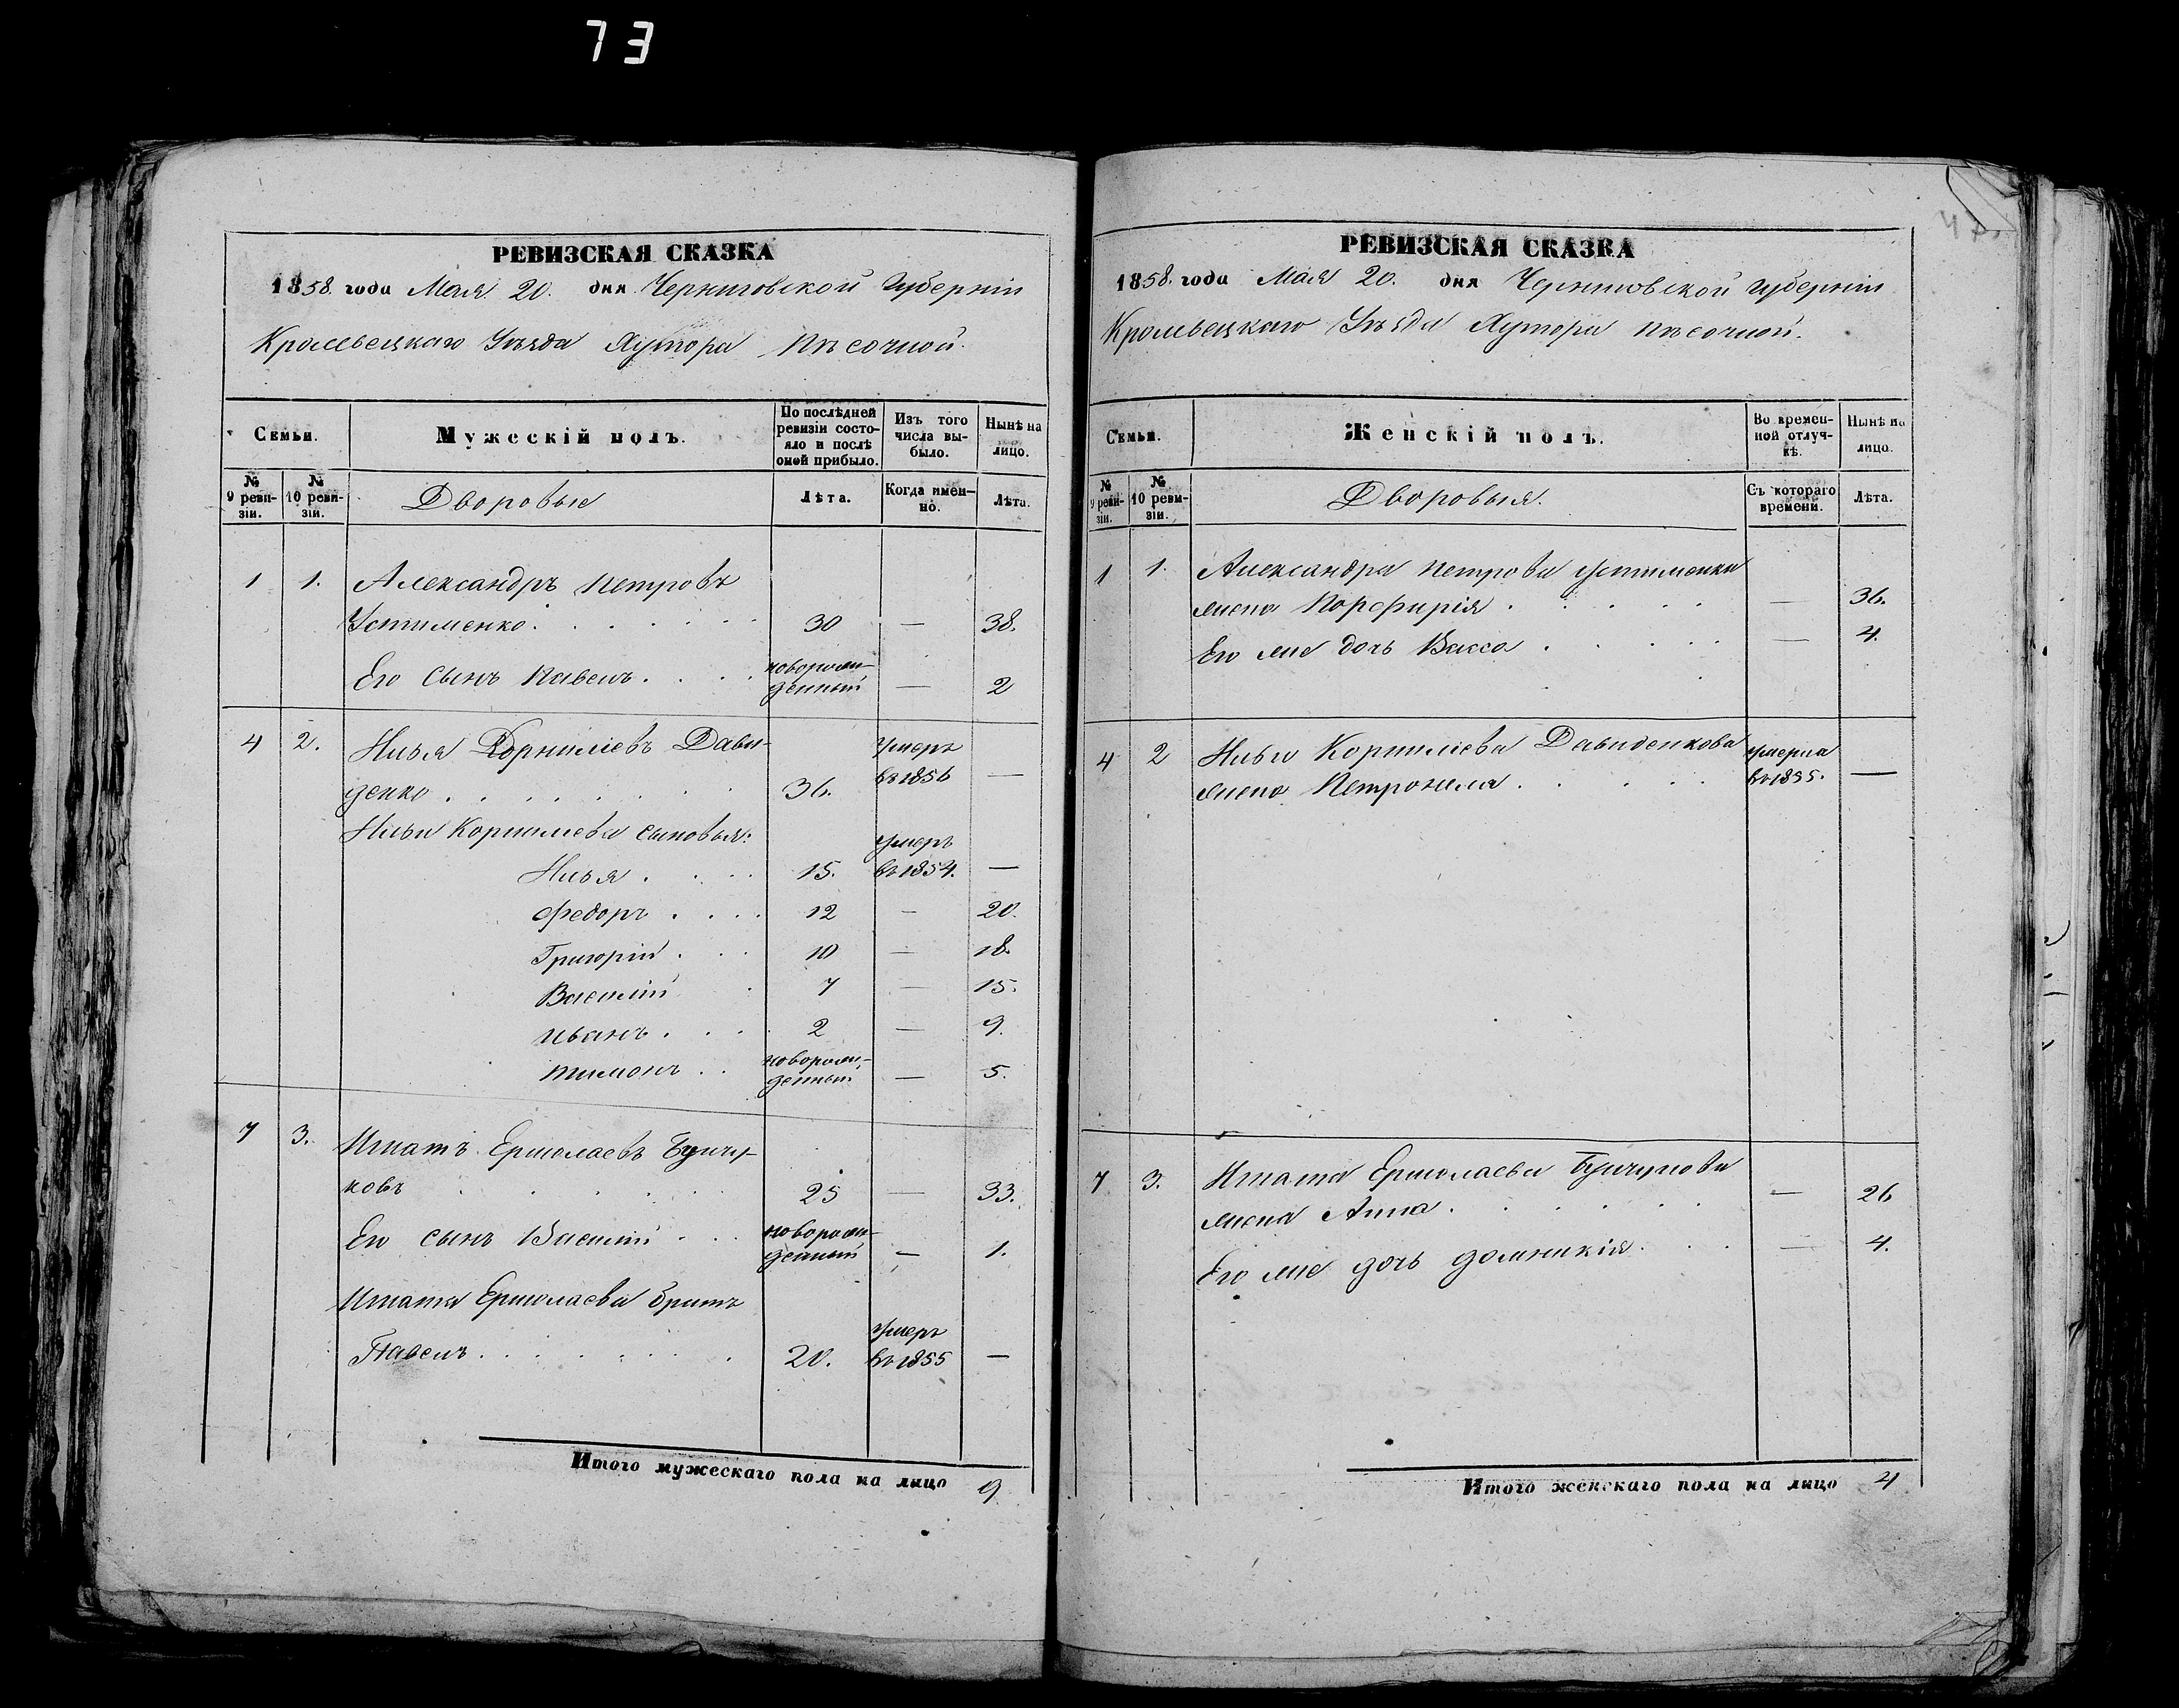 73
РЕВИЗСКАЯ СКАЗКА
1858. года Мая 20. дня Черниговской Губерніи
Кролевецкаго Уѣзда Хутора Пѣсочной.
Семьи.
Мужескій полъ.
По послѣдней ревизіи состояло и послѣ оной прибыло.
Изъ того числа выбыло.
Нынѣ на лицо.
№ 9 ревизіи.
№ 10 ревизіи.
Дворовые
Лѣта.
Когда именно.
Лѣта.
1 1. Александръ Петровъ
Устименко . . . . . . 30 — 38.
Его сынъ Павелъ . . . . новорожденный — 2
4 2. Илья Корниліевъ Дави-
денко . . . . . . . . 36. умеръ въ 1856 —
Ильи Корниліева сыновья:
Илья . . . . 15. умеръ въ 1854. —
Федоръ . . . . 12 — 20.
Григорій . . . 10 — 18.
Василій . 7 — 15.
Иванъ . . . . 2 — 9.
Тимонъ . . новорожденный — 5.
7 3. Игнатъ Ермолаевъ Бунчу-
ковъ . . . . . . 25 — 33.
Его сынъ Василій . . . новорожденный — 1.
Игната Ермолаева братъ
Павелъ . . . . . . . 20. умеръ въ 1855 —
Итого мужескаго пола на лицо 9
РЕВИЗСКАЯ СКАЗКА
1858. года Мая 20. дня Черниговской Губерніи
Кролевецкаго Уѣзда Хутора Пѣсочной.
Семьи.
Женскій полъ.
Во временной отлучкѣ.
Нынѣ на лицо.
№ 9 ревизіи.
№ 10 ревизіи.
Дворовыя.
Съ котораго времени.
Лѣта.
1 1. Александра Петрова Устименка
жена Порфирія . . . . . — 36.
Его же дочь Васса . . . . — 4.
4 2 Ильи Корниліева Давиденкова
жена Петронеля . . . . . умерла въ 1855. —
7 3. Игната Ермолаева Бунчукова
жена Анна . . . . . . — 26
Его же дочь Домникія . . . — 4.
Итого женскаго пола на лицо 4